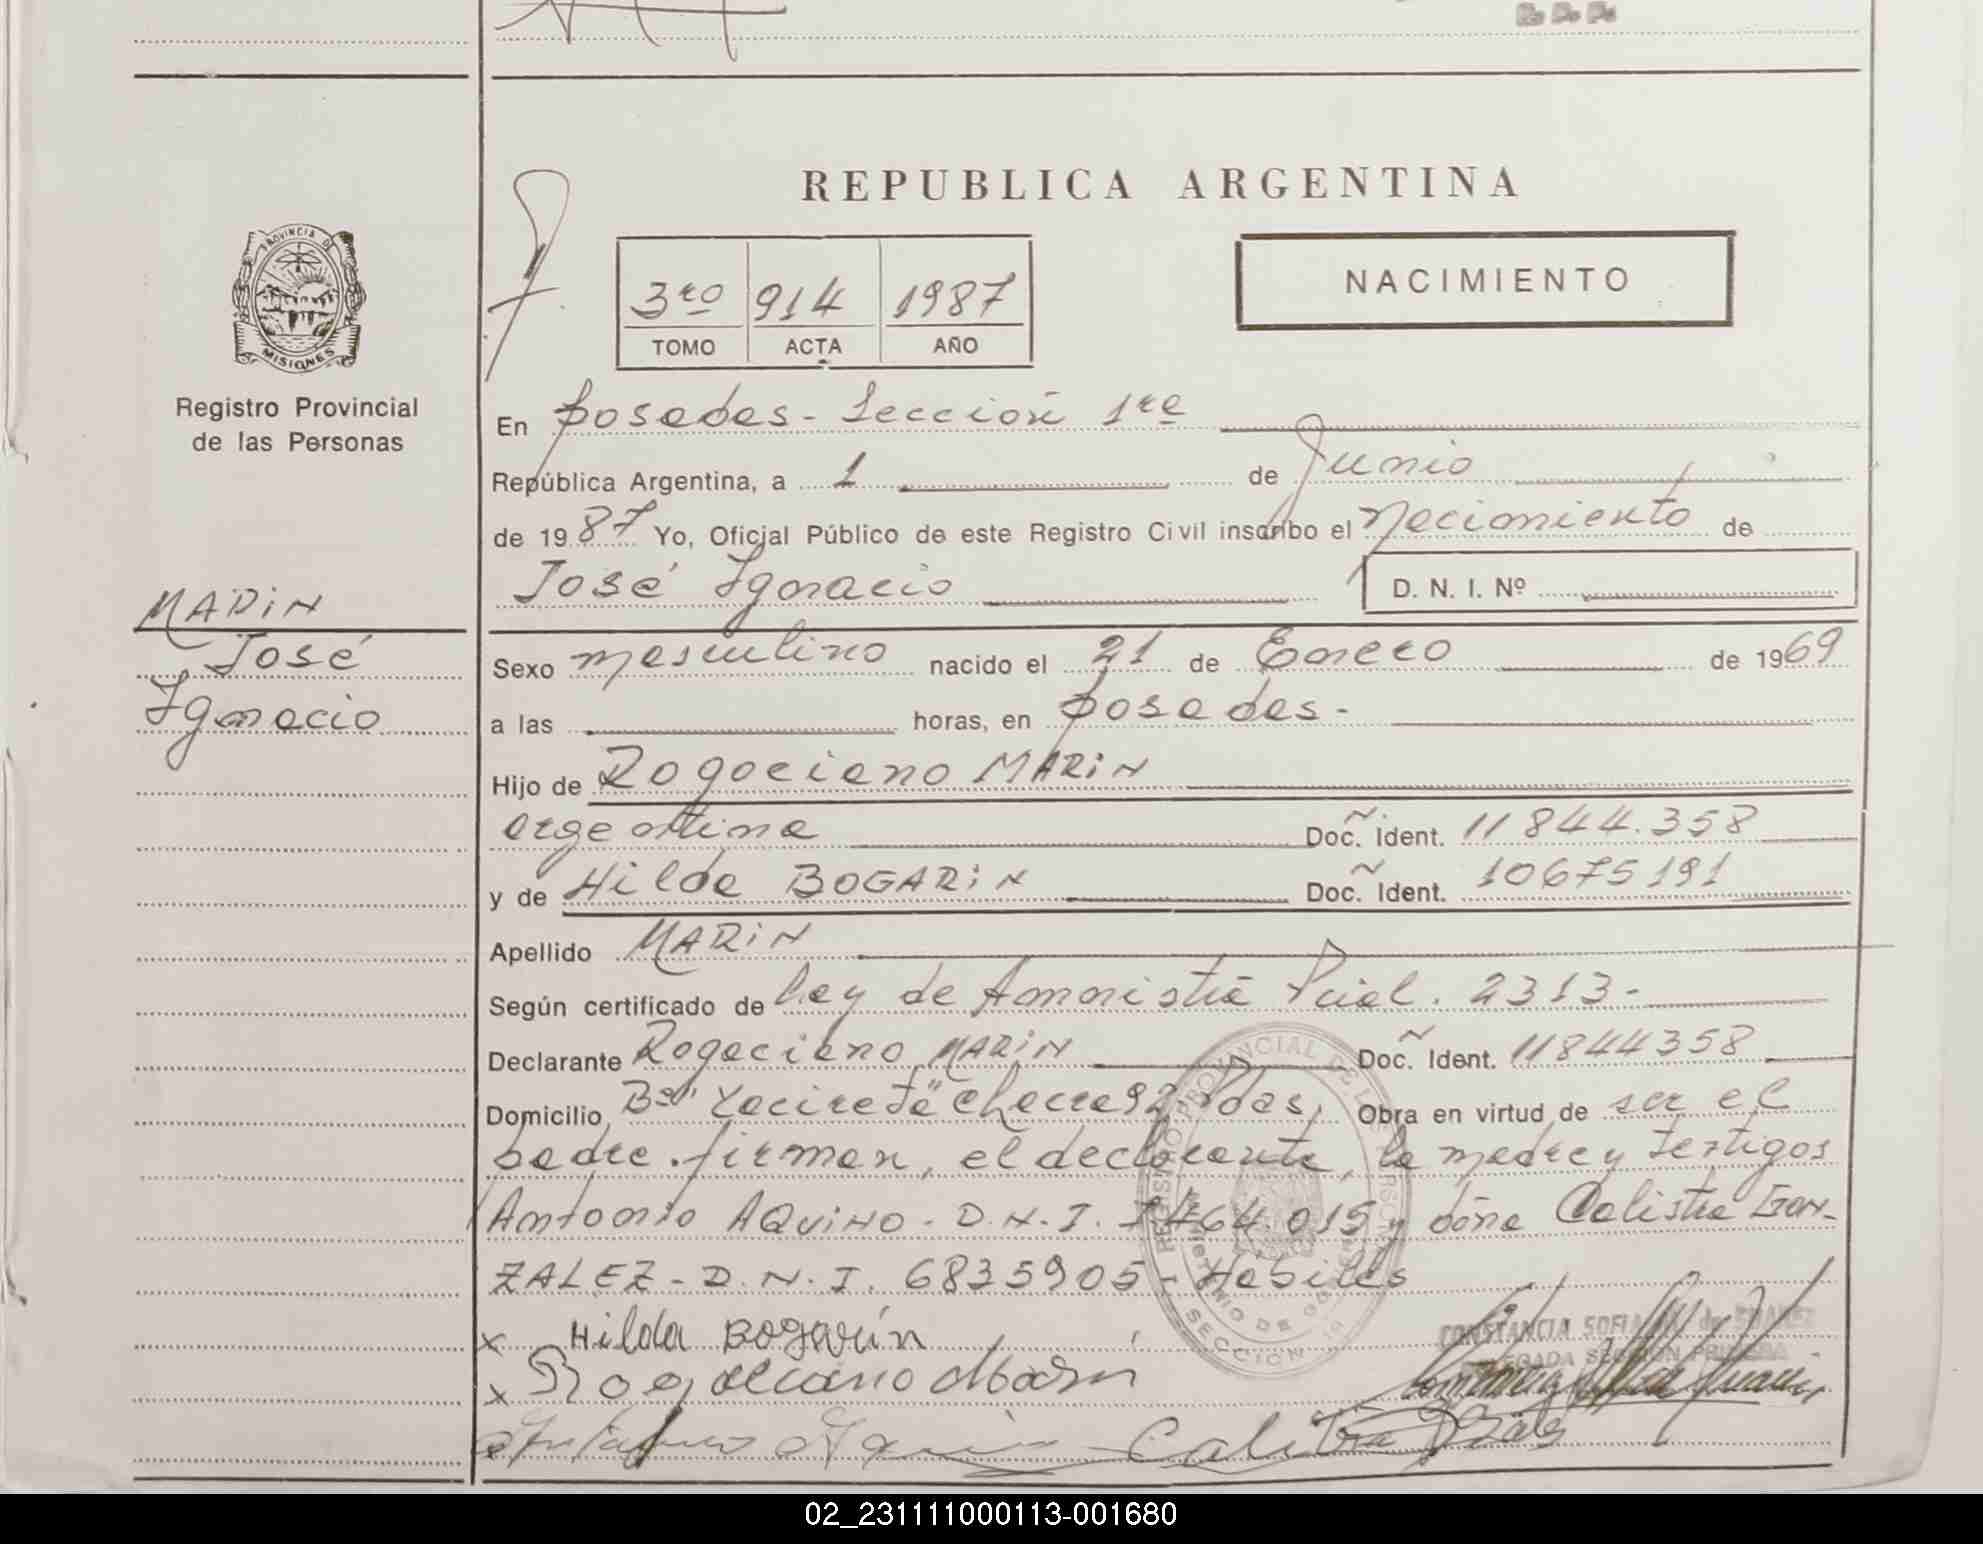 REPUBLICA ARGENTINA
PROVINCIA DE
MISIONES
Registro Provincial
de las Personas
3ro 914 1987
TOMO ACTA AÑO
NACIMIENTO
En Posadas - Sección 1ra
República Argentina, a 1 de Junio
de 1987 Yo, Oficial Público de este Registro Civil inscribo el Nacimiento de
José Ignacio D. N. I. Nº
MARiN
José
Ignacio
Sexo masculino nacido el 21 de Enero de 1969
a las horas, en Posadas-
Hijo de Rogaciano MARiN
argentina Doc. Ident. 11844.358
y de Hilda BOGARiN Doc. Ident. 10675191
Apellido MARiN
Según certificado de Ley de Amnistía Pcial. 2313-
Declarante Rogaciano MARiN Doc. Ident. 11844358
Domicilio Bº "Yaciretá" chacra 92 Pdas. Obra en virtud de ser el
padre. firman, el declarante, la madre y testigos
Antonio AQUiNO - D.N.I. 7464.015 y doña Calistra GON-
ZALEZ - D.N.I. 6835905 - Hábiles
x Hilda Bogarín
x Rogaciano Marin
CONSTANCIA SOFIA de SUAREZ
DELEGADA SECCION PRIMERA
02_231111000113-001680